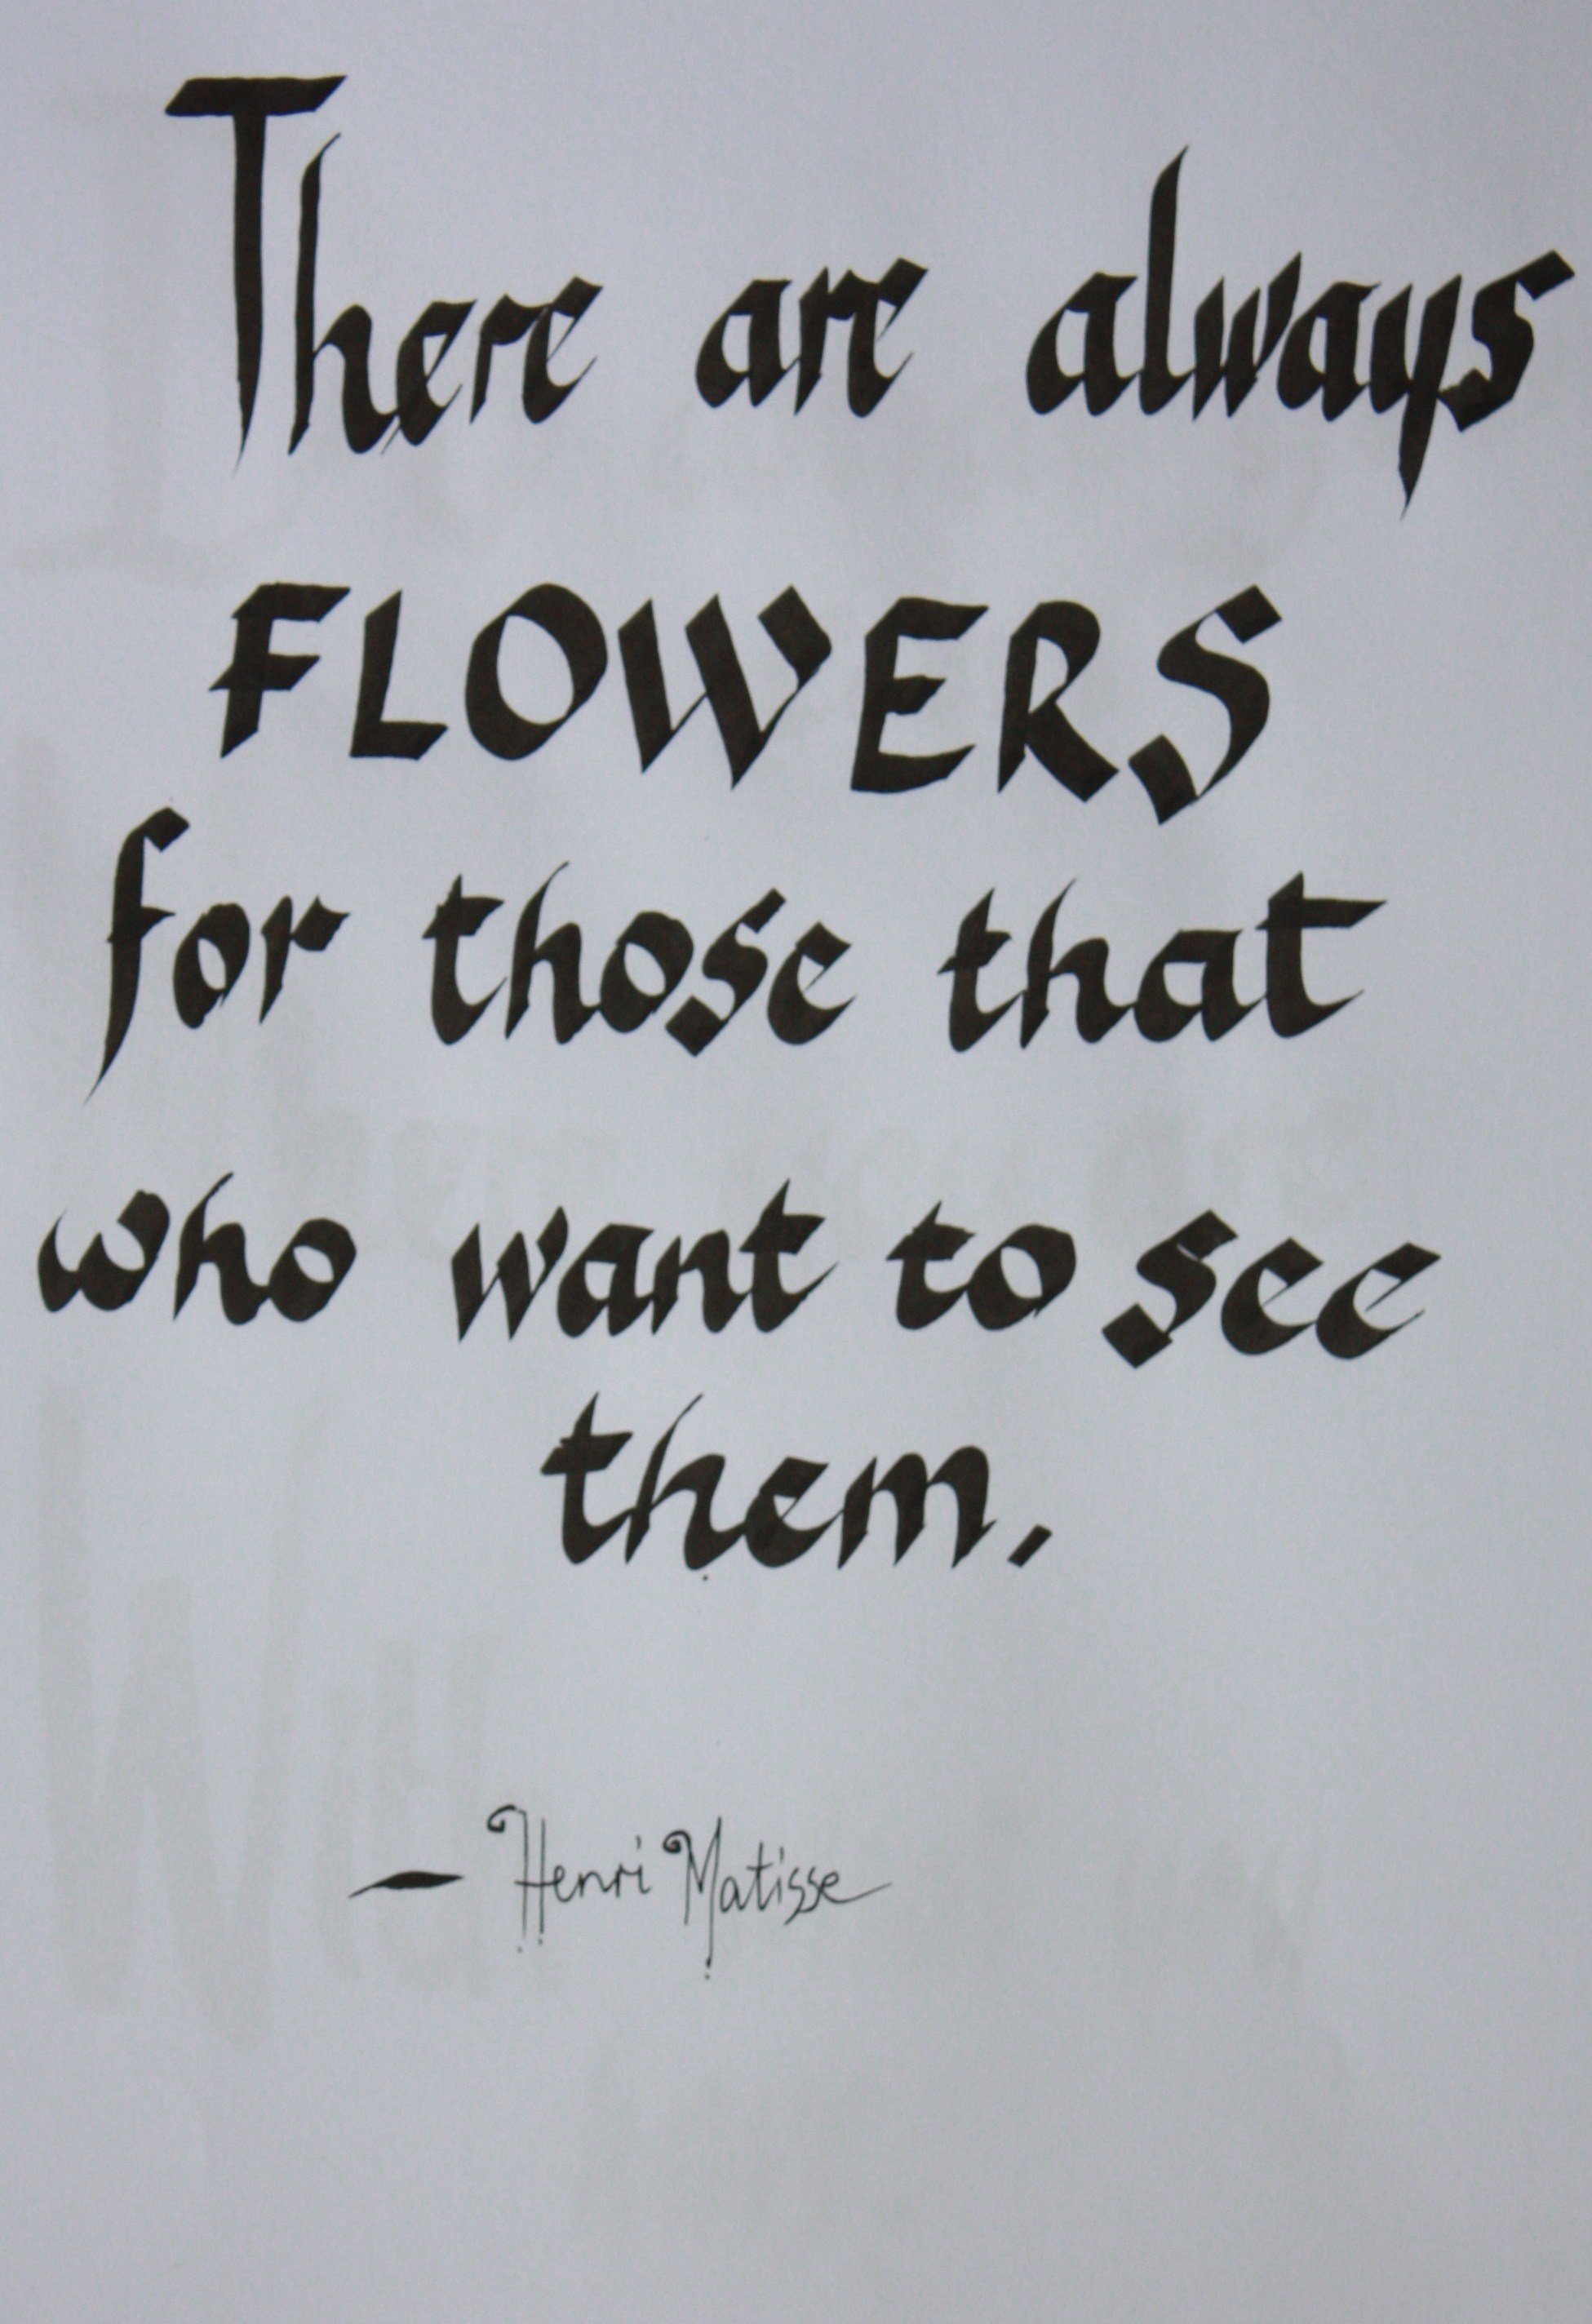 There are always
FLOWERS
for those that
who want to see
them.
— Henri Matisse